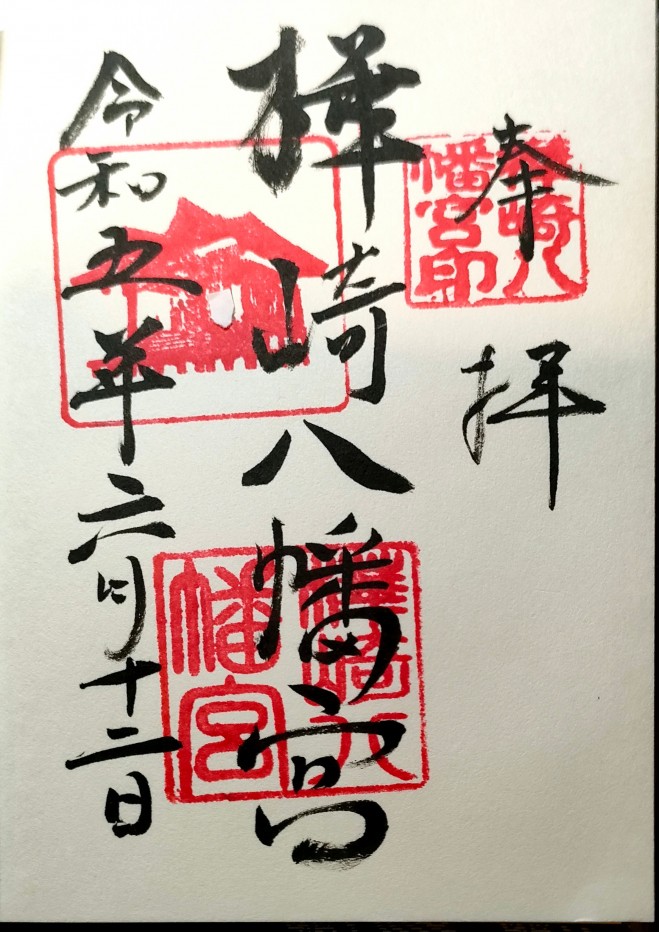 奉拝
樺崎八幡宮
令和五年六月十二日
樺崎八
幡宮印
樺崎八
幡宮